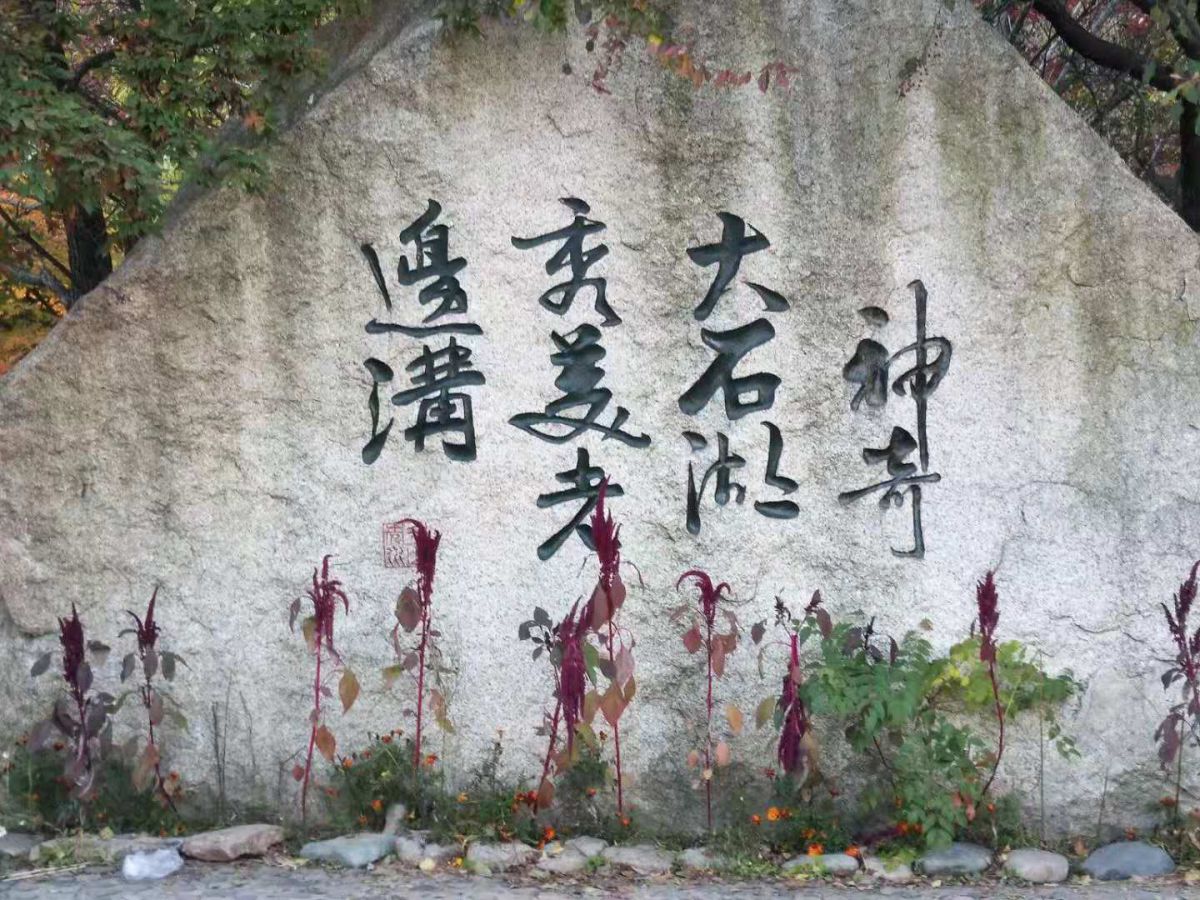 神奇
大石湖
秀美老
邊溝